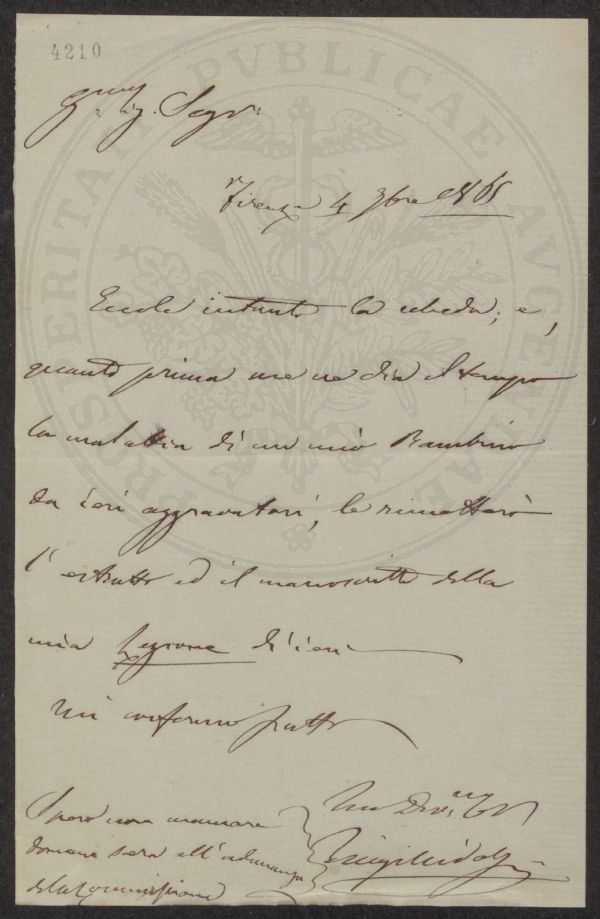 4210
Sig. Segr.
Firenze 4 9bre 1865
Eccole intanto la scheda; e,
quanto prima me ne dia il tempo
la malattia di un mio Bambino
da ieri aggravatasi, le rimetterò
l'estratto ed il manoscritto della
mia Lezione di ieri
Mi confermo frattº
Suo Dev.
Luigi Ridolfi
Spero non mancare
domani sera all'adunanza
della Commissione
PROSPERITATI PVBLICAE AVGENDAE